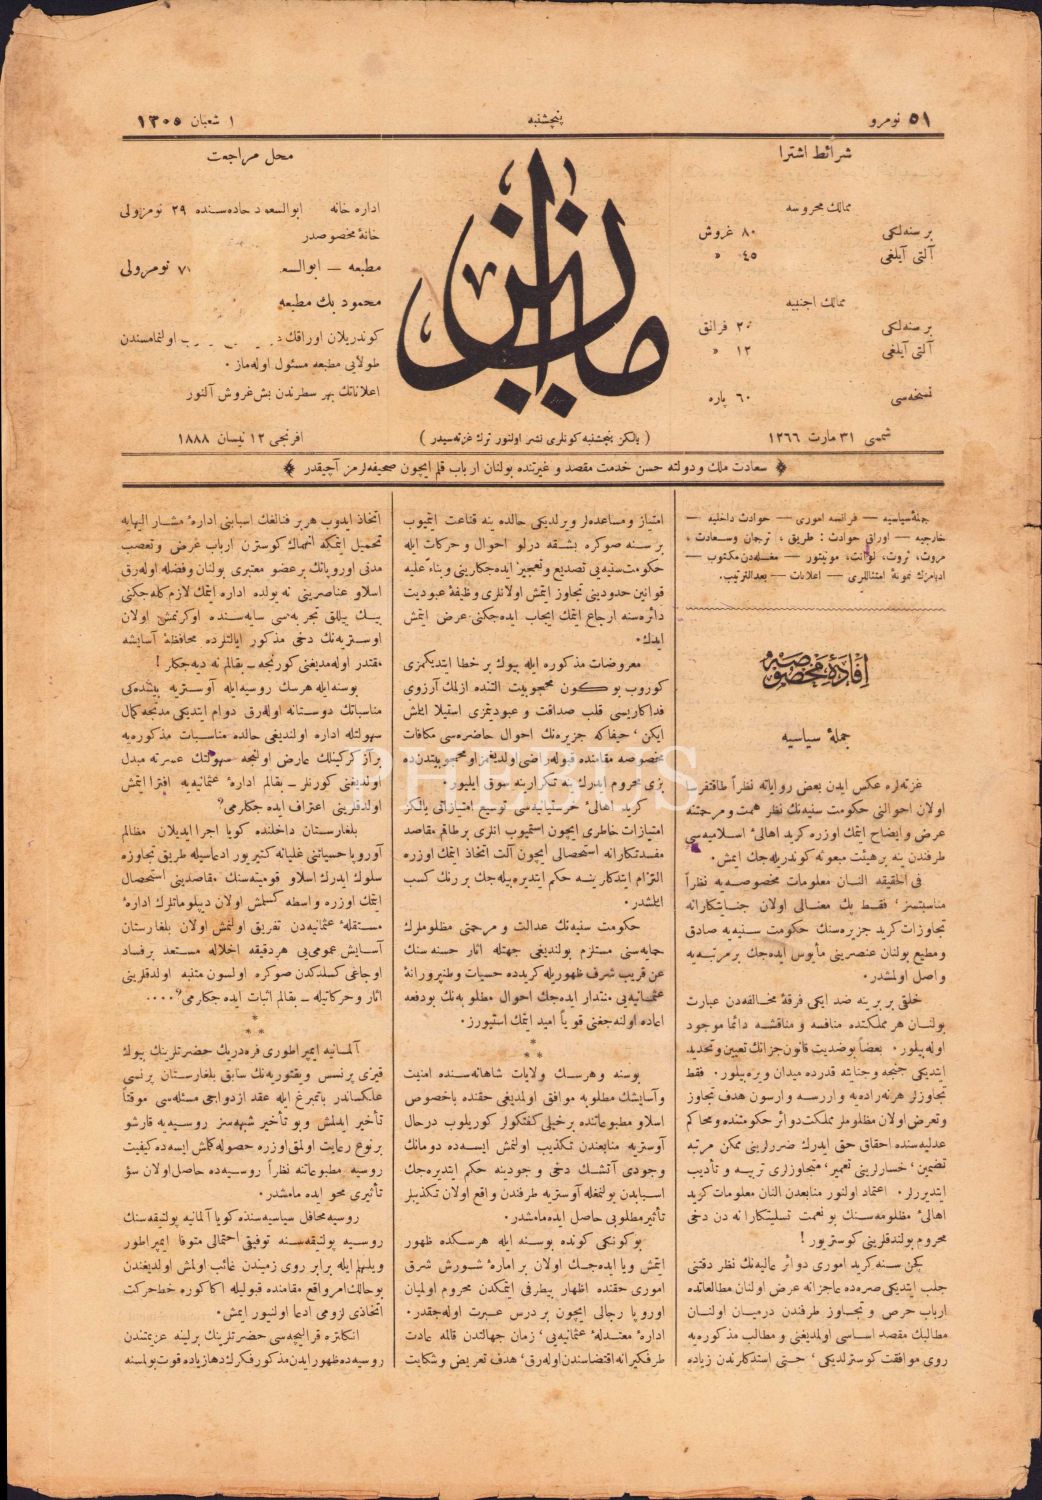 نومرو ٥١
پنجشنبه
١ شعبان ١٣٠٥
شرائط اشترا
ممالك محروسه
بر سنه لكى ٨٠ غروش
آلتى آيلغى ٤٥ »
ممالك اجنبيه
بر سنه لكى ٢٠ فرانق
آلتى آيلغى ١٢ »
نسخه سى ٦٠ پاره
شمسى ٣١ مارت ١٢٦٦
ميزان
( يالكز پنجشنبه كونلرى نشر اولنور ترك غزته سيدر )
محل مراجعت
اداره خانه ابوالسعود جاده سنده ٢٩ نومرولى
خانهٔ مخصوصدر
مطبعه — ابوالسع ٧١ نومرولى
محمود بك مطبعه
كوندريلان اوراقك اولنمامسندن
طولايى مطبعه مسئول اوله ماز .
اعلاناتك بهر سطرندن بش غروش آلنور
افرنجى ١٢ نيسان ١٨٨٨
سعادت ملك و دولته حسن خدمت مقصد و غيرتنده بولنان ارباب قلم ايچون صحيفه لرمز آچيقدر
جملهٔ سياسيه — فرانسه امورى — حوادث داخليه —
خارجيه — اوراق حوادث : طريق ، ترجمان و سعادت ،
مروت، ثروت، لوانت، مونيتور — مغله دن مكتوب —
ادبامزك نمونهٔ امتثاللرى — اعلانات — بعدالترتيب.
افادهٔ مخصوصه
جملهٔ سياسيه
غزته لره عكس ايدن بعض رواياته نظراً طاقتفرسا
اولان احوالنى حكومت سنيه نك نظر همت و مرحمتنه
عرض و ايضاح ايتمك اوزره كريد اهالئ اسلاميه سى
طرفندن ينه بر هيئت مبعوثه كوندريله جك ايمش.
فى الحقيقه النان معلومات مخصوصه يه نظراً
مناسبتسز ، فقط پك معنالى اولان جنايتكارانه
تجاوزات كريد جزيره سنك حكومت سنيه يه صادق
و مطيع بولنان عنصرينى مأيوس ايده جك بر مرتبه يه
واصل اولمشدر.
خلقى بر برينه ضد ايكى فرقهٔ مخالفه دن عبارت
بولنان هر مملكتده منافسه و مناقشه دائما موجود
اوله بيلور. بعضاً بو ضديت قانون جزانك تعيين و تحديد
ايتديكى جنحه و جنايته قدرده ميدان ويره بيلور. فقط
تجاوزلر هر نه راده يه وارر سه وارسون هدف تجاوز
و تعرض اولان مظلوملر مملكت دوائر حكومتنده و محاكم
عدليه سنده احقاق حق ايدرك ضررلرينى ممكن مرتبه
تضمين ، خسارلرينى تعمير، متجاوزلرى تربيه و تأديب
ايتديررلر. اعتماد اولنور منابعدن النان معلومات كريد
اهالئ مظلومه سنك بو نعمت تسليتكارانه دن دخى
محروم بولندقلرينى كوستريور !
كچن سنه كريد امورى دوائر عاليه نك نظر دقتنى
جلب ايتديكى صره ده عاجزانه عرض اولنان مطالعاتده
ارباب حرص و تجاوز طرفندن درميان اولنان
مطالبك مقصد اساسى اولمديغنى و مطالب مذكوره يه
روى موافقت كوسترلديكى ، حتى استدكلرندن زياده
امتياز و مساعده لر ويرلديكى حالده ينه قناعت ايتميوب
بر سنه صوكره بشقه درلو احوال و حركات ايله
حكومت سنيه يى تصديع و تعجيز ايده جكلرينى و بناءً عليه
قوانين حدودينى تجاوز ايتمش اولانلرى وظيفهٔ عبوديت
دائره سنه ارجاع ايتمك ايجاب ايده جكنى عرض ايتمش
ايدك.
معروضات مذكوره ايله بيوك بر خطا ايتديكمزى
كوروب بوكون محجوبيت التنده ازلمك آرزوى
فداكاريسى قلب صداقت و عبوديتمزى استيلا ايلمش
ايكن ، حيفاكه جزيره نك احوال حاضره سى مكافات
مخصوصه مقامنده قبوله راضى اولديغمز او محجوبيتدن ده
بزى محروم ايدرك ينه تكرارينه سوق ايليور.
كريد اهالئ خرستيانيه سى توسيع امتيازاتى يالكز
امتيازات خاطرى ايچون استميوب انلرى بر طاقم مقاصد
مفسدتكارانه استحصالى ايچون آلت اتخاذ ايتمك اوزره
التزام ايتدكلرينه حكم ايتديره بيله جك بر رنك كسب
ايلمشدر.
حكومت سنيه نك عدالت و مرحمتى مظلوملرك
حمايه سنى مستلزم بولنديغى جهتله اثار حسنه سنك
عن قريب شرف ظهوريله كريدده حسيات وطنپرورانهٔ
عثمانيه يى منتدار ايده جك احوال مطلوبه نك بودفعه
اعاده اولنه جغنى قوياً اميد ايتمك استيورز.
*
* *
بوسنه و هرسك ولايات شاهانه سنده امنيت
و آسايشك مطلوبه موافق اولمديغى حقنده باخصوص
اسلاو مطبوعاتنده برخيلى كفتكولر كوريلوب درحال
آوستريه منابعندن تكذيب اولنمش ايسه ده دومانك
وجودى آتشك دخى وجودينه حكم ايتديره جك
اسبابدن بولنمغله آوستريه طرفندن واقع اولان تكذيبلر
تأثير مطلوبى حاصل ايده مامشدر.
بوكونكى كونده بوسنه ايله هرسكده ظهور
ايتمش ويا ايده جك اولان بر امارهٔ شورش شرق
امورى حقنده اظهار بيطرفى ايتمكدن محروم اوليان
اوروپا رجالى ايچون بر درس عبرت اوله جقدر.
ادارهٔ معتدلهٔ عثمانيه يى ، زمان جهالتدن قالمه عادت
طرفكيرانه اقتضاسندن اوله رق، هدف تعريض و شكايت
اتخاذ ايدوب هر بر فنالغك اسبابنى ادارهٔ مشار اليهايه
تحميل ايتمكه انهماك كوسترن ارباب غرض و تعصب
مدنى اوروپانك بر عضو معتبرى بولنان و فضله اوله رق
اسلاو عناصرينى نه يولده اداره ايتمك لازم كله جكنى
بيك ييللق تجربه سى سايه سنده اوكرنمش اولان
اوستريه نك دخى مذكور ايالتلرده محافظهٔ آسايشه
مقتدر اوله مديغنى كورنجه — بقالم نه ديه جكلر !
بوسنه ايله هرسك روسيه ايله آوستريه بيننده كى
مناسباتك دوستانه اوله رق دوام ايتديكى مدتجه كمال
سهولتله اداره اولنديغى حالده مناسبات مذكوره يه
براز كركينلك عارض اولنجه سهولتك عسرته مبدل
اولديغنى كورنلر — بقالم ادارهٔ عثمانيه يه افترا ايتمش
اولدقلرينى اعتراف ايده جكلرمى؟
بلغارستان داخلنده كويا اجرا ايديلان مظالم
آوروپا حسياتنى غليانه كتيريور ادعاسيله طريق تجاوزه
سلوك ايدرك اسلاو قوميته سنك مقاصدينى استحصال
ايتمك اوزره واسطه كسلمش اولان ديپلوماتلرك ادارهٔ
مستقلهٔ عثمانيه دن تفريق اولنمش اولان بلغارستان
آسايش عمومى يى هر دقيقه اخلاله مستعد بر فساد
اوجاغى كسلدكدن صوكره اولسون متنبه اولدقلرينى
اثار و حركاتيله — بقالم اثبات ايده جكلرمى؟....
*
* *
آلمانيه ايمپراطورى فره دريك حضرتلرينك بيوك
قيزى پرنسس ويقتوريه نك سابق بلغارستان پرنسى
علكساندر باتمبرغ ايله عقد ازدواجى مسئله سى موقتاً
تأخير ايدلمش و بو تأخير شبهه سز روسيه يه قارشو
بر نوع رعايت اولمق اوزره حصوله كلمش ايسه ده كيفيت
روسيه مطبوعاتنه نظراً روسيه ده حاصل اولان سؤ
تأثيرى محو ايده مامشدر.
روسيه محافل سياسيه سنده كويا آلمانيه پولتيقه سنك
روسيه پولتيقه سنه توفيقى احتمالى متوفا ايمپراطور
ويلهلم ايله برابر روى زميندن غائب اولمش اولديغندن
بو حالك امر واقع مقامنده قبوليله اكا كوره خط حركت
اتخاذى لزومى ادعا اولنيور ايمش.
انكلتره قراليچه سى حضرتلرينك برلينه عزيمتندن
روسيه ده ظهور ايدن مذكور فكرك دها زياده قوت بولمسنه
PHEBUS